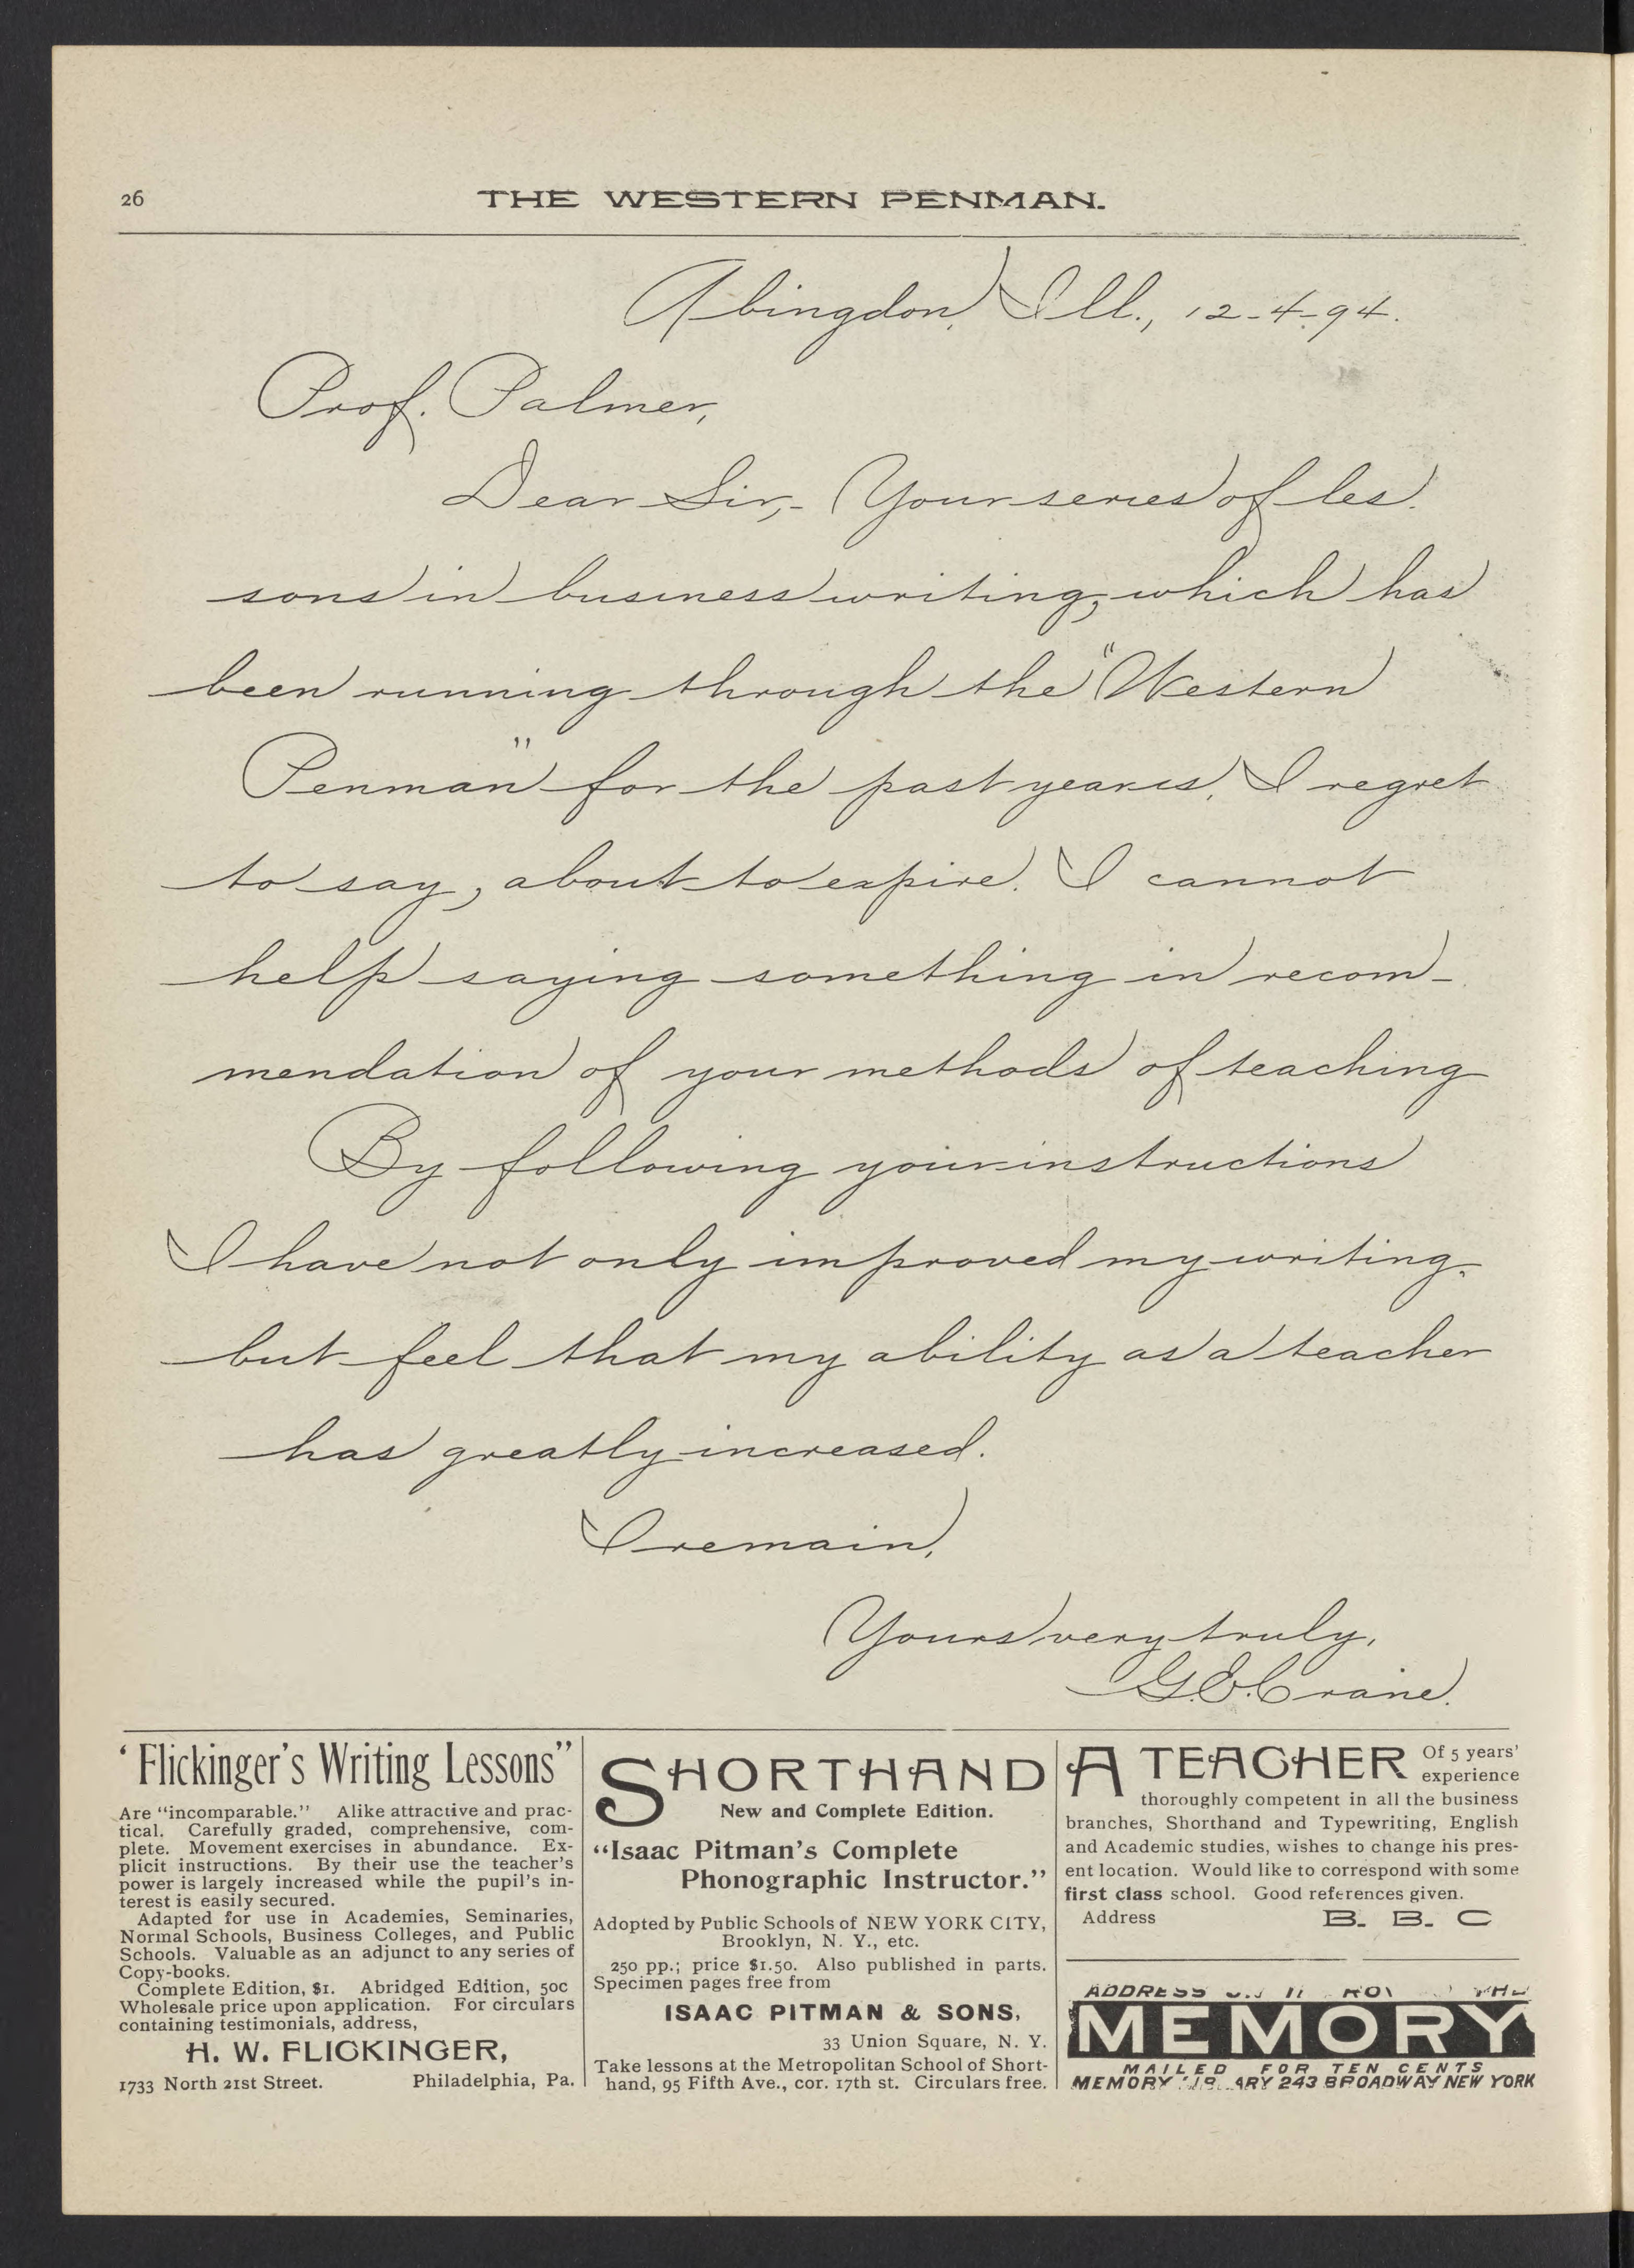 26
THE WESTERN PENMAN.
Abingdon, Ill., 12-4-94.
Prof. Palmer,
Dear Sir,- Your series of les-
sons in business writing, which has
been running through the "Western
Penman" for the past year is, I regret
to say, about to expire. I cannot
help saying something in recom-
mendation of your methods of teaching
By following your instructions
I have not only improved my writing,
but feel that my ability as a teacher
has greatly increased.
I remain,
Yours very truly,
G.E. Crane.
‘Flickinger's Writing Lessons”
Are “incomparable.” Alike attractive and prac-
tical. Carefully graded, comprehensive, com-
plete. Movement exercises in abundance. Ex-
plicit instructions. By their use the teacher's
power is largely increased while the pupil's in-
terest is easily secured.
Adapted for use in Academies, Seminaries,
Normal Schools, Business Colleges, and Public
Schools. Valuable as an adjunct to any series of
Copy-books.
Complete Edition, $1. Abridged Edition, 50c
Wholesale price upon application. For circulars
containing testimonials, address,
H. W. FLICKINGER,
1733 North 21st Street. Philadelphia, Pa.
SHORTHAND
New and Complete Edition.
“Isaac Pitman's Complete
Phonographic Instructor.”
Adopted by Public Schools of NEW YORK CITY,
Brooklyn, N. Y., etc.
250 pp.; price $1.50. Also published in parts.
Specimen pages free from
ISAAC PITMAN & SONS,
33 Union Square, N. Y.
Take lessons at the Metropolitan School of Short-
hand, 95 Fifth Ave., cor. 17th st. Circulars free.
A TEACHER Of 5 years'
experience
thoroughly competent in all the business
branches, Shorthand and Typewriting, English
and Academic studies, wishes to change his pres-
ent location. Would like to correspond with some
first class school. Good references given.
Address B. B. C
ADDRESS
MEMORY
MAILED FOR TEN CENTS
MEMORY 243 BROADWAY NEW YORK